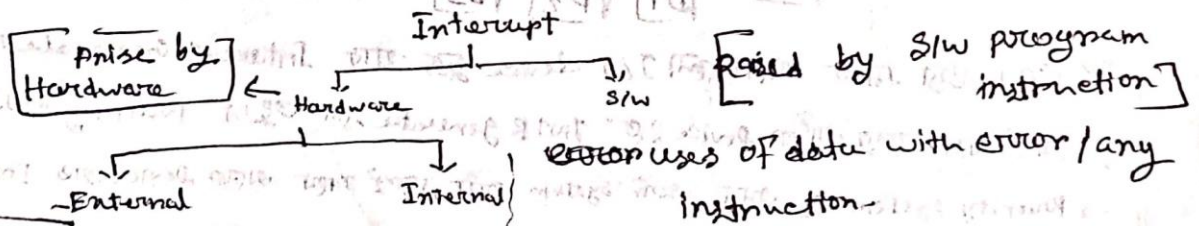 Interrupt
[Arise by
Hardware] ← Hardware
S/w [Raised by S/w program
instruction]
External
Internal } uses of data with error / any
instruction-